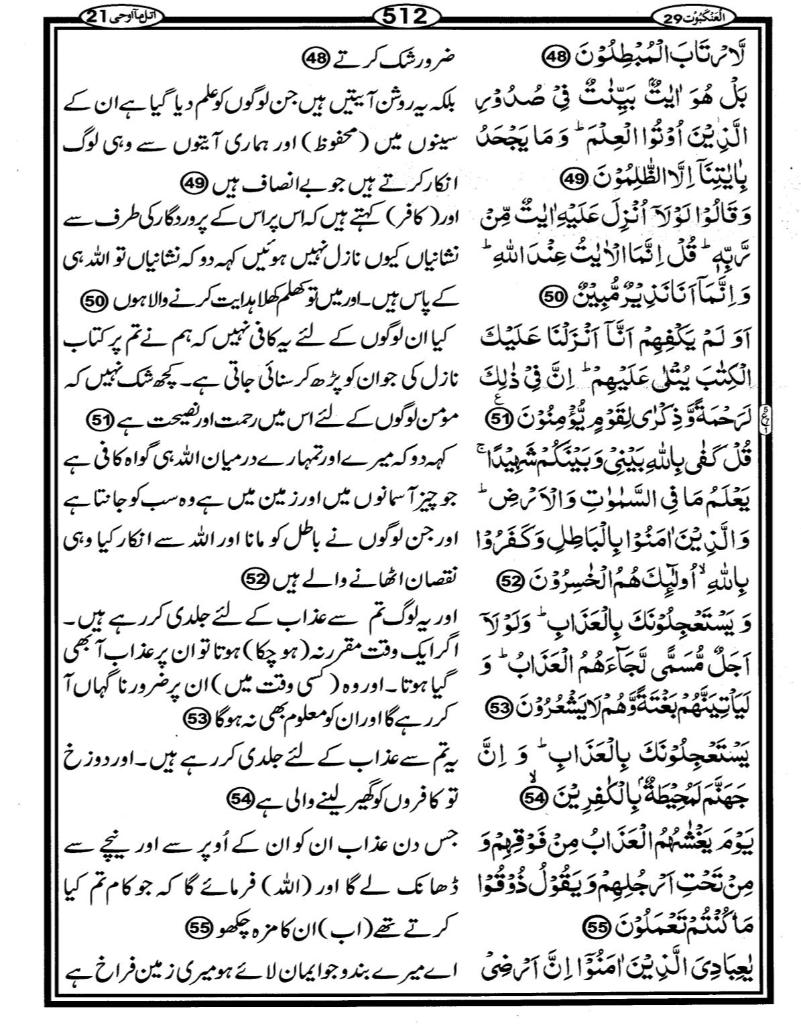 اتل مآ اوحی 21
512
العنکبوت 29
لَّارْتَابَ الْمُبْطِلُوْنَ 48
بَلْ هُوَ اٰيٰتٌۢ بَيِّنٰتٌ فِيْ صُدُوْرِ
الَّذِيْنَ اُوْتُوا الْعِلْمَ ؕ وَ مَا يَجْحَدُ
بِاٰيٰتِنَاۤ اِلَّا الظّٰلِمُوْنَ 49
وَ قَالُوْا لَوْلَاۤ اُنْزِلَ عَلَيْهِ اٰيٰتٌ مِّنْ
رَّبِّهٖ ؕ قُلْ اِنَّمَا الْاٰيٰتُ عِنْدَ اللّٰهِ ؕ
وَ اِنَّمَاۤ اَنَا نَذِيْرٌ مُّبِيْنٌ 50
اَوَ لَمْ يَكْفِهِمْ اَنَّاۤ اَنْزَلْنَا عَلَيْكَ
الْكِتٰبَ يُتْلٰى عَلَيْهِمْ ؕ اِنَّ فِيْ ذٰلِكَ
لَرَحْمَةً وَّ ذِكْرٰى لِقَوْمٍ يُّؤْمِنُوْنَ 51
قُلْ كَفٰى بِاللّٰهِ بَيْنِيْ وَ بَيْنَكُمْ شَهِيْدًا ۚ
يَعْلَمُ مَا فِي السَّمٰوٰتِ وَ الْاَرْضِ ؕ
وَ الَّذِيْنَ اٰمَنُوْا بِالْبَاطِلِ وَ كَفَرُوْا
بِاللّٰهِ ۙ اُولٰٓئِكَ هُمُ الْخٰسِرُوْنَ 52
وَ يَسْتَعْجِلُوْنَكَ بِالْعَذَابِ ؕ وَ لَوْ لَاۤ
اَجَلٌ مُّسَمًّى لَّجَآءَهُمُ الْعَذَابُ ؕ وَ
لَيَاْتِيَنَّهُمْ بَغْتَةً وَّ هُمْ لَا يَشْعُرُوْنَ 53
يَسْتَعْجِلُوْنَكَ بِالْعَذَابِ ؕ وَ اِنَّ
جَهَنَّمَ لَمُحِيْطَةٌۢ بِالْكٰفِرِيْنَ ۙ 54
يَوْمَ يَغْشٰىهُمُ الْعَذَابُ مِنْ فَوْقِهِمْ وَ
مِنْ تَحْتِ اَرْجُلِهِمْ وَ يَقُوْلُ ذُوْقُوْا
مَا كُنْتُمْ تَعْمَلُوْنَ 55
يٰعِبَادِيَ الَّذِيْنَ اٰمَنُوْۤا اِنَّ اَرْضِيْ
ضرور شک کرتے 48
بلکہ یہ روشن آیتیں ہیں جن لوگوں کو علم دیا گیا ہے ان کے
سینوں میں (محفوظ) اور ہماری آیتوں سے وہی لوگ
انکار کرتے ہیں جو بے انصاف ہیں 49
اور (کافر) کہتے ہیں کہ اس پر اس کے پروردگار کی طرف سے
نشانیاں کیوں نازل نہیں ہوئیں کہہ دو کہ نشانیاں تو اللہ ہی
کے پاس ہیں۔ اور میں تو کھلم کھلا ہدایت کرنے والا ہوں 50
کیا ان لوگوں کے لئے یہ کافی نہیں کہ ہم نے تم پر کتاب
نازل کی جو ان کو پڑھ کر سنائی جاتی ہے۔ کچھ شک نہیں کہ
مومن لوگوں کے لئے اس میں رحمت اور نصیحت ہے 51
کہہ دو کہ میرے اور تمہارے درمیان اللہ ہی گواہ کافی ہے
جو چیز آسمانوں میں اور زمین میں ہے وہ سب کو جانتا ہے
اور جن لوگوں نے باطل کو مانا اور اللہ سے انکار کیا وہی
نقصان اٹھانے والے ہیں 52
اور یہ لوگ تم سے عذاب کے لئے جلدی کر رہے ہیں۔
اگر ایک وقت مقرر نہ (ہو چکا) ہوتا تو ان پر عذاب آ بھی
گیا ہوتا۔ اور وہ (کسی وقت میں) ان پر ضرور ناگہاں آ
کر رہے گا اور ان کو معلوم بھی نہ ہوگا 53
یہ تم سے عذاب کے لئے جلدی کر رہے ہیں۔ اور دوزخ
تو کافروں کو گھیر لینے والی ہے 54
جس دن عذاب ان کو ان کے اُوپر سے اور نیچے سے
ڈھانک لے گا اور (اللہ) فرمائے گا کہ جو کام تم کیا
کرتے تھے (اب) ان کا مزہ چکھو 55
اے میرے بندو جو ایمان لائے ہو میری زمین فراخ ہے